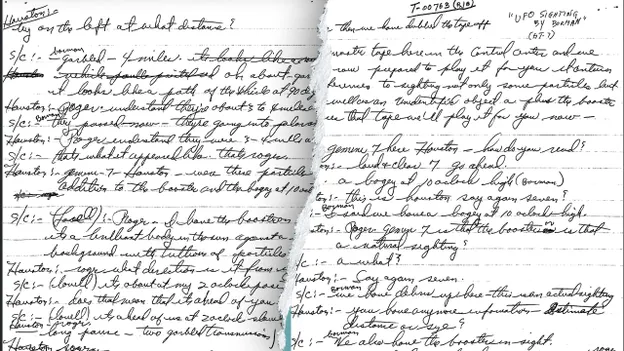 Houston:
try on the left at what distance?
S/C:- Borman garbled - 4 miles. it looks like
Houston: which sed oh about gar
it looks like a path of the vehicle at 90 de
Houston: Roger understand they're about 3 to 4 miles
S/C:- Borman they passed now - they're going into polar
Houston:- Roger understand they were 3-4 mil
S/C:- that's what it appeared like. that's roger.
Houston:- gemini-7-Houston - were these particle
addition to the booster and the bogey at 10
S/C:- (Lovell):- Roger - I have the booster on
it's a brilliant body in the sun against a
background with trillions of particle
Houston:- roger what direction is it from
S/C:- (Lovell) it's about at my 2 oclock pos
Houston:- does that mean that it's ahead of you
S/C:- (Lovell) it's ahead of us at 2 oclock slow
Houston roger
long pause - two garbled transmissions)
Houston roger
T-00763 (R10)
then we have dubbed the tape off
"UFO SIGHTING
BY BORMAN"
(GT-7)
master tape here in the Control Center and we
now prepared to play it for you it contains
ferences to sighting not only some particles but
well as an unidentified object a plus the booste
is that tape we'll play it for you now -
gemini 7 here Houston - how do you read?
ton:- loud & clear 7 go ahead.
a bogey at 10 oclock high (Borman)
ton:- this is houston say again seven?
Borman
:- I said we have a bogey at 10 oclock high.
ton:- Roger Gemini 7 is that the booster or is that
a natural sighting?
S/C:- a what?
Houston:- Say again seven.
S/C:- Borman we have debris up here - this is an actual sighting
Houston:- you have anymore information - Estimate
distance or size?
S/C:- Borman We also have the booster in sight.